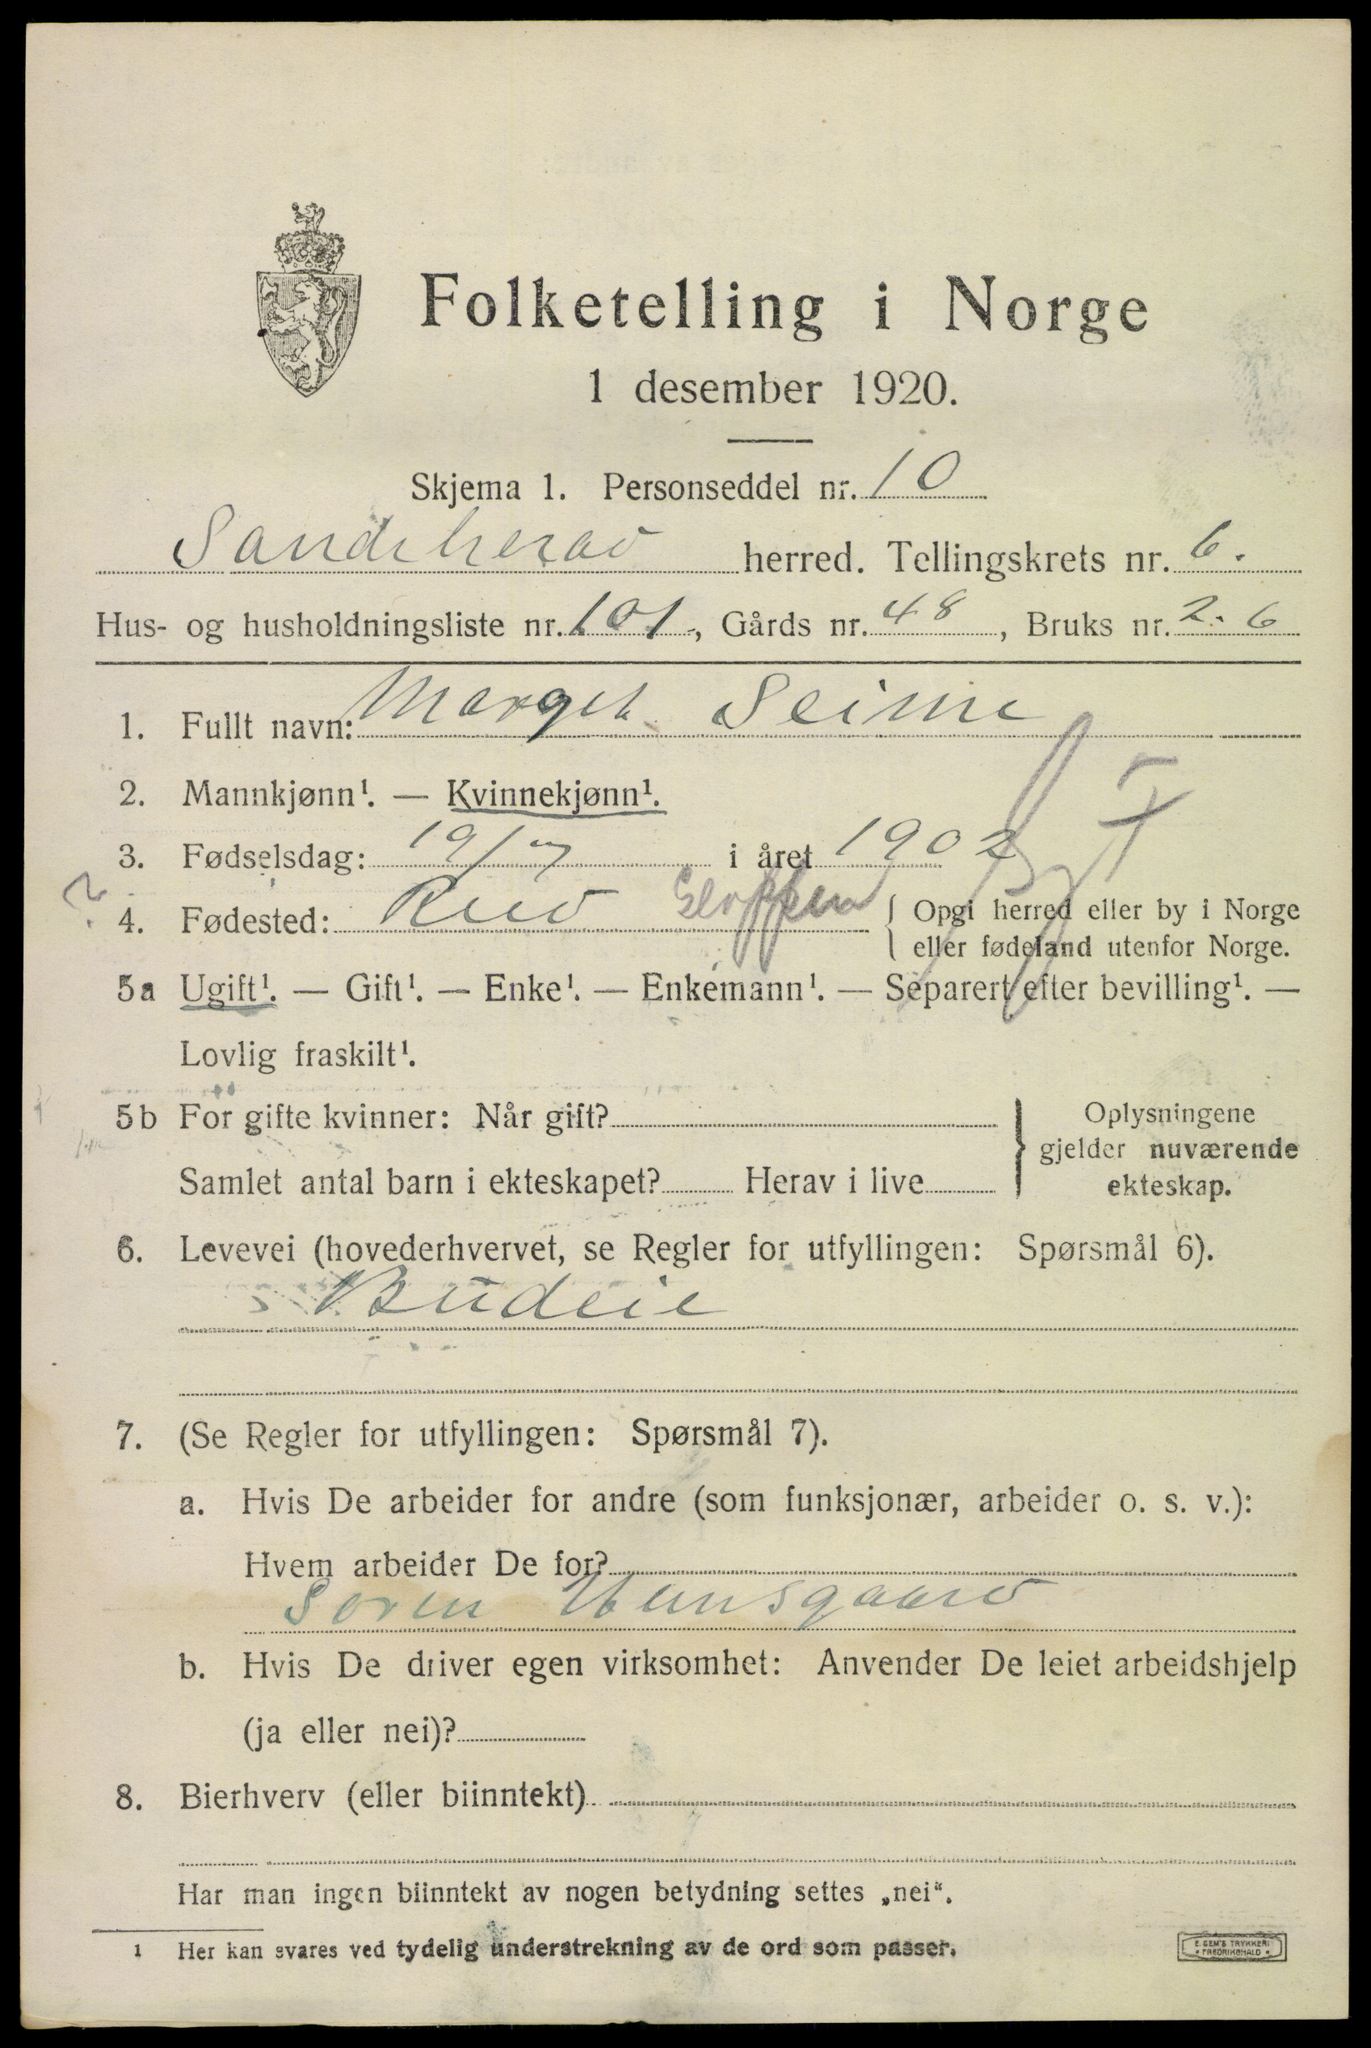 Folketelling i Norge
1 desember 1920.
Skjema 1. Personseddel nr. 10
Sandeherad herred. Tellingskrets nr. 6.
Hus- og husholdningsliste nr. 101, Gårds nr. 48, Bruks nr. 2. 6
1. Fullt navn: Marget Seime
2. Mannkjønn¹. — Kvinnekjønn¹.
3. Fødselsdag: 19/7 i året 1902
? 4. Fødested: Gloppen { Opgi herred eller by i Norge
eller fødeland utenfor Norge.
5a Ugift¹. — Gift¹. — Enke¹. — Enkemann¹. — Separert efter bevilling¹. —
Lovlig fraskilt¹.
5b For gifte kvinner: Når gift? } Oplysningene
gjelder nuværende
Samlet antal barn i ekteskapet? Herav i live ekteskap.
6. Levevei (hovederhvervet, se Regler for utfyllingen: Spørsmål 6).
Budeie
7. (Se Regler for utfyllingen: Spørsmål 7).
a. Hvis De arbeider for andre (som funksjonær, arbeider o. s. v.):
Hvem arbeider De for?
Soren
b. Hvis De driver egen virksomhet: Anvender De leiet arbeidshjelp
(ja eller nei)?
8. Bierhverv (eller biinntekt)
Har man ingen biinntekt av nogen betydning settes „nei“.
1 Her kan svares ved tydelig understrekning av de ord som passer.
E. SEM'S TRYKKERI
• FREDRIKSHALD •